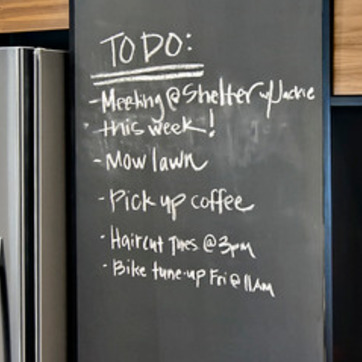 TO DO:
-Meeting @ Shelter w/ Jackie
- this week!
-Mow lawn
- Pick up coffee
- Haircut Tues @ 3pm
- Bike tune-up Fri @ 11AM